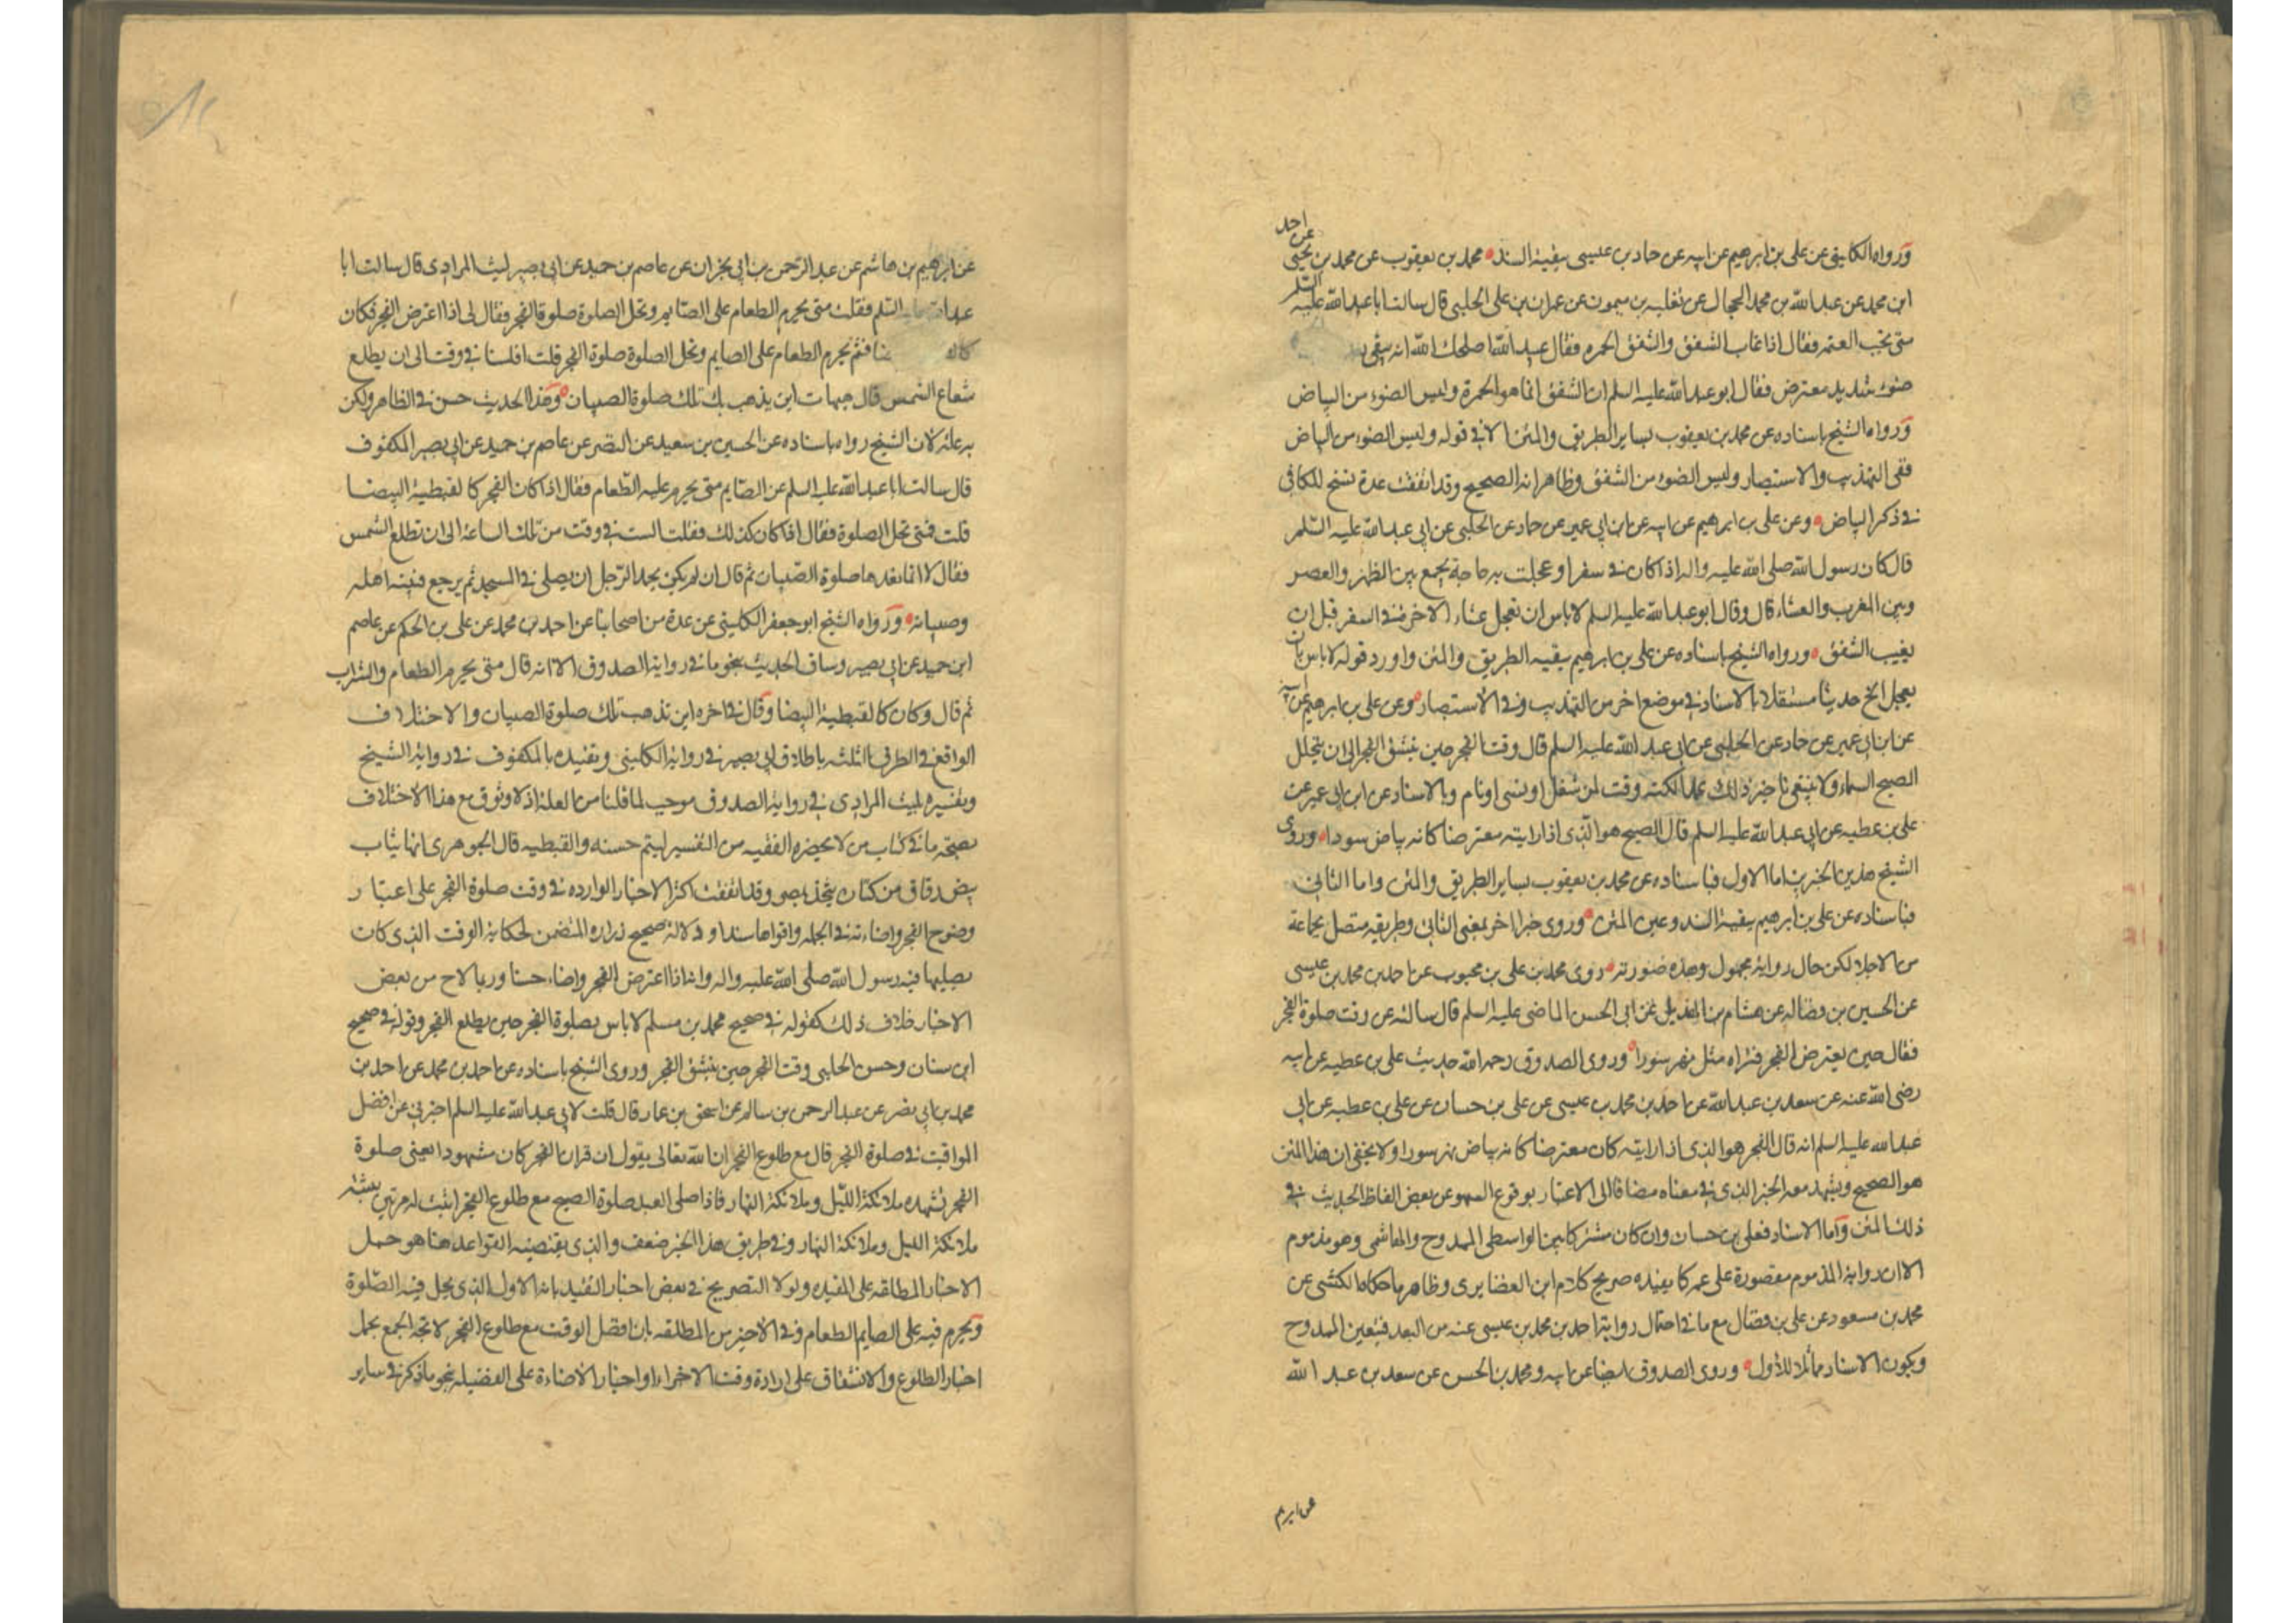 ورواه الكليني عن علي بن ابرهيم عن ابيه عن حماد بن عيسى ببقية السند محمد بن يعقوب عن محمد بن يحيى عن احمد
ابن محمد عن عبد الله بن محمد الحجال عن ثعلبه بن ميمون عن عمران بن علي الحلبي قال سالت ابا عبد الله عليه السلم
متى تجب العتمه فقال اذا غاب الشفق والشفق الحمره فقال عبيد الله اصلحك الله انه يبقى
ضوء شديد معترض فقال ابو عبد الله عليه السلم ان الشفق انما هو الحمرة وليس الضوء من البياض
ورواه الشيخ باسناده عن محمد بن يعقوب بساير الطريق والمتن الا في قوله وليس الضوء من البياض
ففى التهذيب والاستبصار وليس الضوء من الشفق وظاهر انه الصحيح وقد اتفقت عدة نسخ للكافي
في ذكر البياض وعن علي بن ابرهيم عن ابيه عن ابن ابي عمير عن حماد عن الحلبي عن ابي عبد الله عليه السلم
قال كان رسول الله صلى الله عليه واله اذا كان في سفر او عجلت به حاجة يجمع بين الظهر والعصر
وبين المغرب والعشاء قال وقال ابو عبد الله عليه السلم لا باس ان تعجل عشاء الاخرة في السفر قبل ان
يغيب الشفق ورواه الشيخ باسناده عن علي بن ابرهيم ببقيه الطريق والمتن واورد قوله لا باس بان
يعجل الخ حديثا مستقلا بالاسناد في موضع اخر من التهذيب وفي الاستبصار وعن علي بن ابرهيم عن ابيه
عن ابن ابي عمير عن حماد عن الحلبي عن ابي عبد الله عليه السلم قال وقت الفجر حين ينشق الفجر الى ان يتجلل
الصبح السماء ولا ينبغي تاخير ذلك عمدا لكنه وقت لمن شغل او نسى او نام وبالاسناد عن ابن ابي عمير عن
علي بن عطيه عن ابي عبد الله عليه السلم قال الصبح هو الذي اذا رايته معترضا كانه بياض سورا وروى
الشيخ هذين الخبرين اما الاول فباسناده عن محمد بن يعقوب بساير الطريق والمتن واما الثاني
فباسناده عن علي بن ابرهيم ببقية السند وعين المتن وروى خبرا اخر بمعنى الثاني وطريقه متصل بجماعة
من الاجلا لكن حال روايه مجهول وهذه صورته روى محمد بن علي بن محبوب عن احمد بن محمد بن عيسى
عن الحسين بن فضاله عن هشام بن الهذيل عن ابي الحسن الماضى عليه السلم قال سالته عن وقت صلوة الفجر
فقال حين يعترض الفجر فتراه مثل نهر سورا وروى الصدوق رحمه الله حديث علي بن عطيه عن ابيه
رضى الله عنه عن سعد بن عبد الله عن احمد بن محمد بن عيسى عن علي بن حسان عن علي بن عطيه عن ابي
عبد الله عليه السلم انه قال الفجر هو الذي اذا رايته كان معترضا كانه بياض نهر سورا ولا يخفى ان هذا المتن
هو الصحيح ويشهد معه الخبر الذي في معناه مضافا الى الاعتبار بوقوع السهو عن بعض الفاظ الحديث في
ذلك المتن واما الاسناد فعلي بن حسان وان كان مشتركا بين الواسطي الممدوح والهاشمي وهو مذموم
الا ان رواية المذموم مقصورة على عمه كما يفيده صريح كلام ابن الغضايرى وظاهر ما حكاه الكشي عن
محمد بن مسعود عن علي بن فضال مع ما في احتمال رواية احمد بن محمد بن عيسى عنه من البعد فتعين الممدوح
ويكون الاسناد مماثلا للاول وروى الصدوق ايضا عن ابيه ومحمد بن الحسن عن سعد بن عبد الله
عن ابرهيم
عن ابرهيم بن هاشم عن عبد الرحمن بن ابي نجران عن عاصم بن حميد عن ابي بصير ليث المرادى قال سالت ابا
عبد الله عليه السلم فقلت متى يحرم الطعام على الصايم وتحل الصلوة صلوة الفجر فقال لي اذا اعترض الفجر فكان
فثم يحرم الطعام على الصايم وتحل الصلوة صلوة الفجر قلت افلسنا في وقت الى ان يطلع
شعاع الشمس قال هيهات اين يذهب بك تلك صلوة الصبيان وهذا الحديث حسن في الظاهر ولكن
به علة لان الشيخ رواه باسناده عن الحسين بن سعيد عن النضر عن عاصم بن حميد عن ابي بصير المكفوف
قال سالت ابا عبد الله عليه السلم عن الصايم متى يحرم عليه الطعام فقال اذا كان الفجر كالقبطية البيضا
قلت فمتى تحل الصلوة فقال اذا كان كذلك فقلت الست في وقت من تلك الساعة الى ان تطلع الشمس
فقال لا انما نعدها صلوة الصبيان ثم قال ان لم يكن يحمد الرجل ان يصلي في المسجد ثم يرجع فينبه اهله
وصبيانه ورواه الشيخ ابو جعفر الكليني عن عدة من اصحابنا عن احمد بن محمد عن علي بن الحكم عن عاصم
ابن حميد عن ابي بصير وساق الحديث بنحو ما في رواية الصدوق الا انه قال متى يحرم الطعام والشراب
ثم قال وكان كالقبطية البيضا وقال في اخره اين تذهب تلك صلوة الصبيان والاختلاف
الواقع في الطرق الثلث باطلاق ابي بصير في رواية الكليني وتقييده بالمكفوف في رواية الشيخ
وتفسيره بليث المرادى في رواية الصدوق موجب لما قلنا من العلة اذ لا وثوق مع هذا الاختلاف
بصحة ما في كتاب من لا يحضره الفقيه من التفسير ليتم حسنه والقبطيه قال الجوهرى انها ثياب
بيض دقاق من كتان يتخذ بمصر وقد اتفقت اكثر الاخبار الوارده في وقت صلوة الفجر على اعتبار
وضوح الفجر واضاءته في الجمله واقواها سندا ودلالة صحيح زراره المتضمن لحكاية الوقت الذي كان
يصليها فيه رسول الله صلى الله عليه واله وانه اذا اعترض الفجر واضاء حسنا وربما لاح من بعض
الاخبار خلاف ذلك كقوله في صحيح محمد بن مسلم لا باس بصلوة الفجر حين يطلع الفجر وقوله في صحيح
ابن سنان وحسن الحلبي وقت الفجر حين ينشق الفجر وروى الشيخ باسناده عن احمد بن محمد عن احمد بن
محمد بن ابي نصر عن عبد الرحمن بن سالم عن اسحق بن عمار قال قلت لابي عبد الله عليه السلم اخبرني عن افضل
المواقيت في صلوة الفجر قال مع طلوع الفجر ان الله تعالى يقول ان قران الفجر كان مشهودا يعنى صلوة
الفجر تشهده ملائكة الليل وملائكة النهار فاذا صلى العبد صلوة الصبح مع طلوع الفجر اثبت له مرتين يثبته
ملائكة الليل وملائكة النهار وفي طريق هذا الخبر ضعف والذي يقتضيه القواعد هنا هو حمل
الاخبار المطلقه على المقيده ولولا التصريح في بعض اخبار التقييد بانه الاول الذي يحل فيه الصلوة
ويحرم فيه على الصايم الطعام وفي الاخير من المطلقه بان افضل الوقت مع طلوع الفجر لاتجه الجمع بحمل
اخبار الطلوع والانشقاق على ارادة وقت الاجزاء واخبار الاضاءة على الفضيله بنحو ما ذكر في ساير